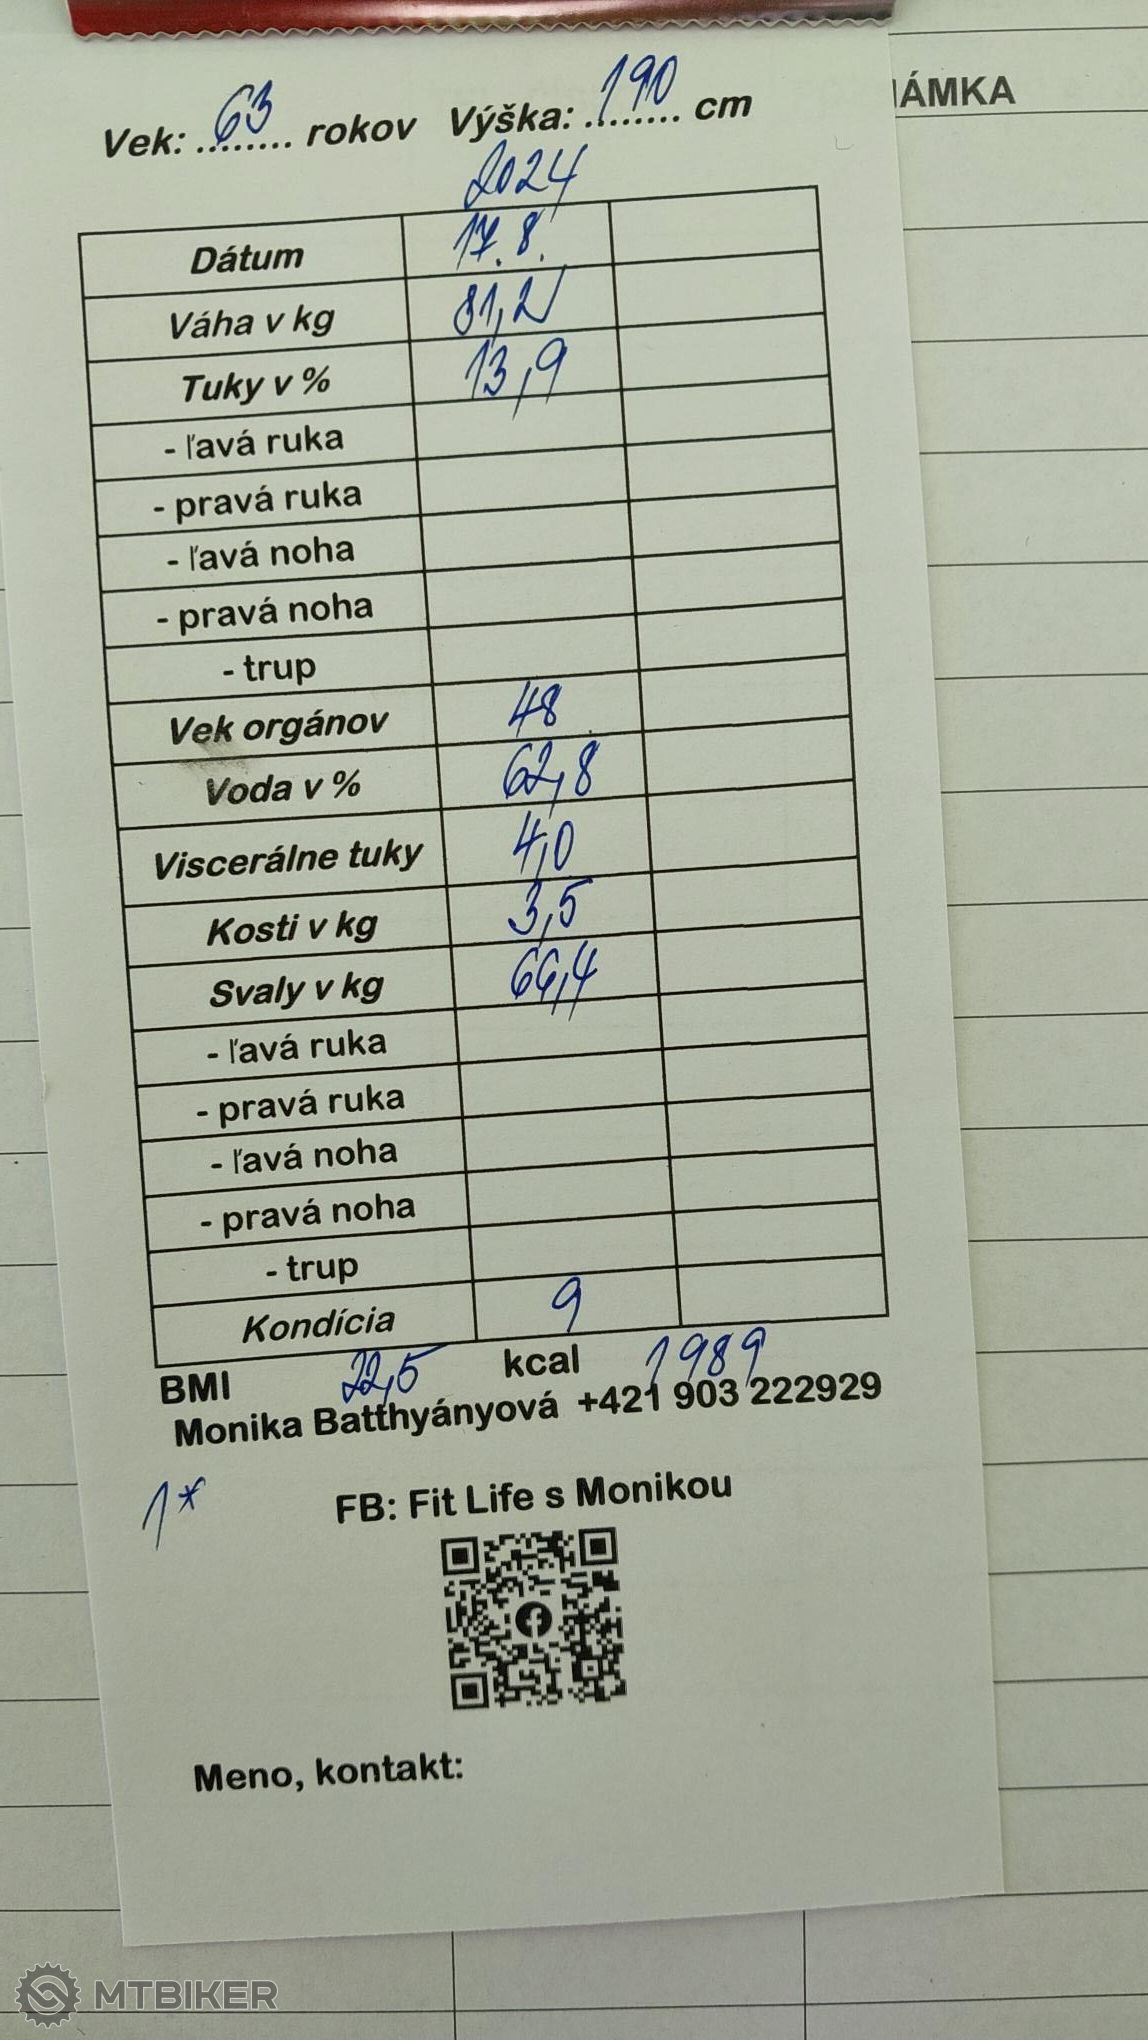 NÁMKA
Vek: 63 rokov Výška: 190 cm
2024
Dátum 17.8.
Váha v kg 81,2
Tuky v % 13,9
- ľavá ruka
- pravá ruka
- ľavá noha
- pravá noha
- trup
Vek orgánov 48
Voda v % 62,8
Viscerálne tuky 4,0
Kosti v kg 3,5
Svaly v kg 66,4
- ľavá ruka
- pravá ruka
- ľavá noha
- pravá noha
- trup
Kondícia 9
BMI 22,5 kcal 1989
Monika Batthyányová +421 903 222929
1*
FB: Fit Life s Monikou
Meno, kontakt:
MTBIKER